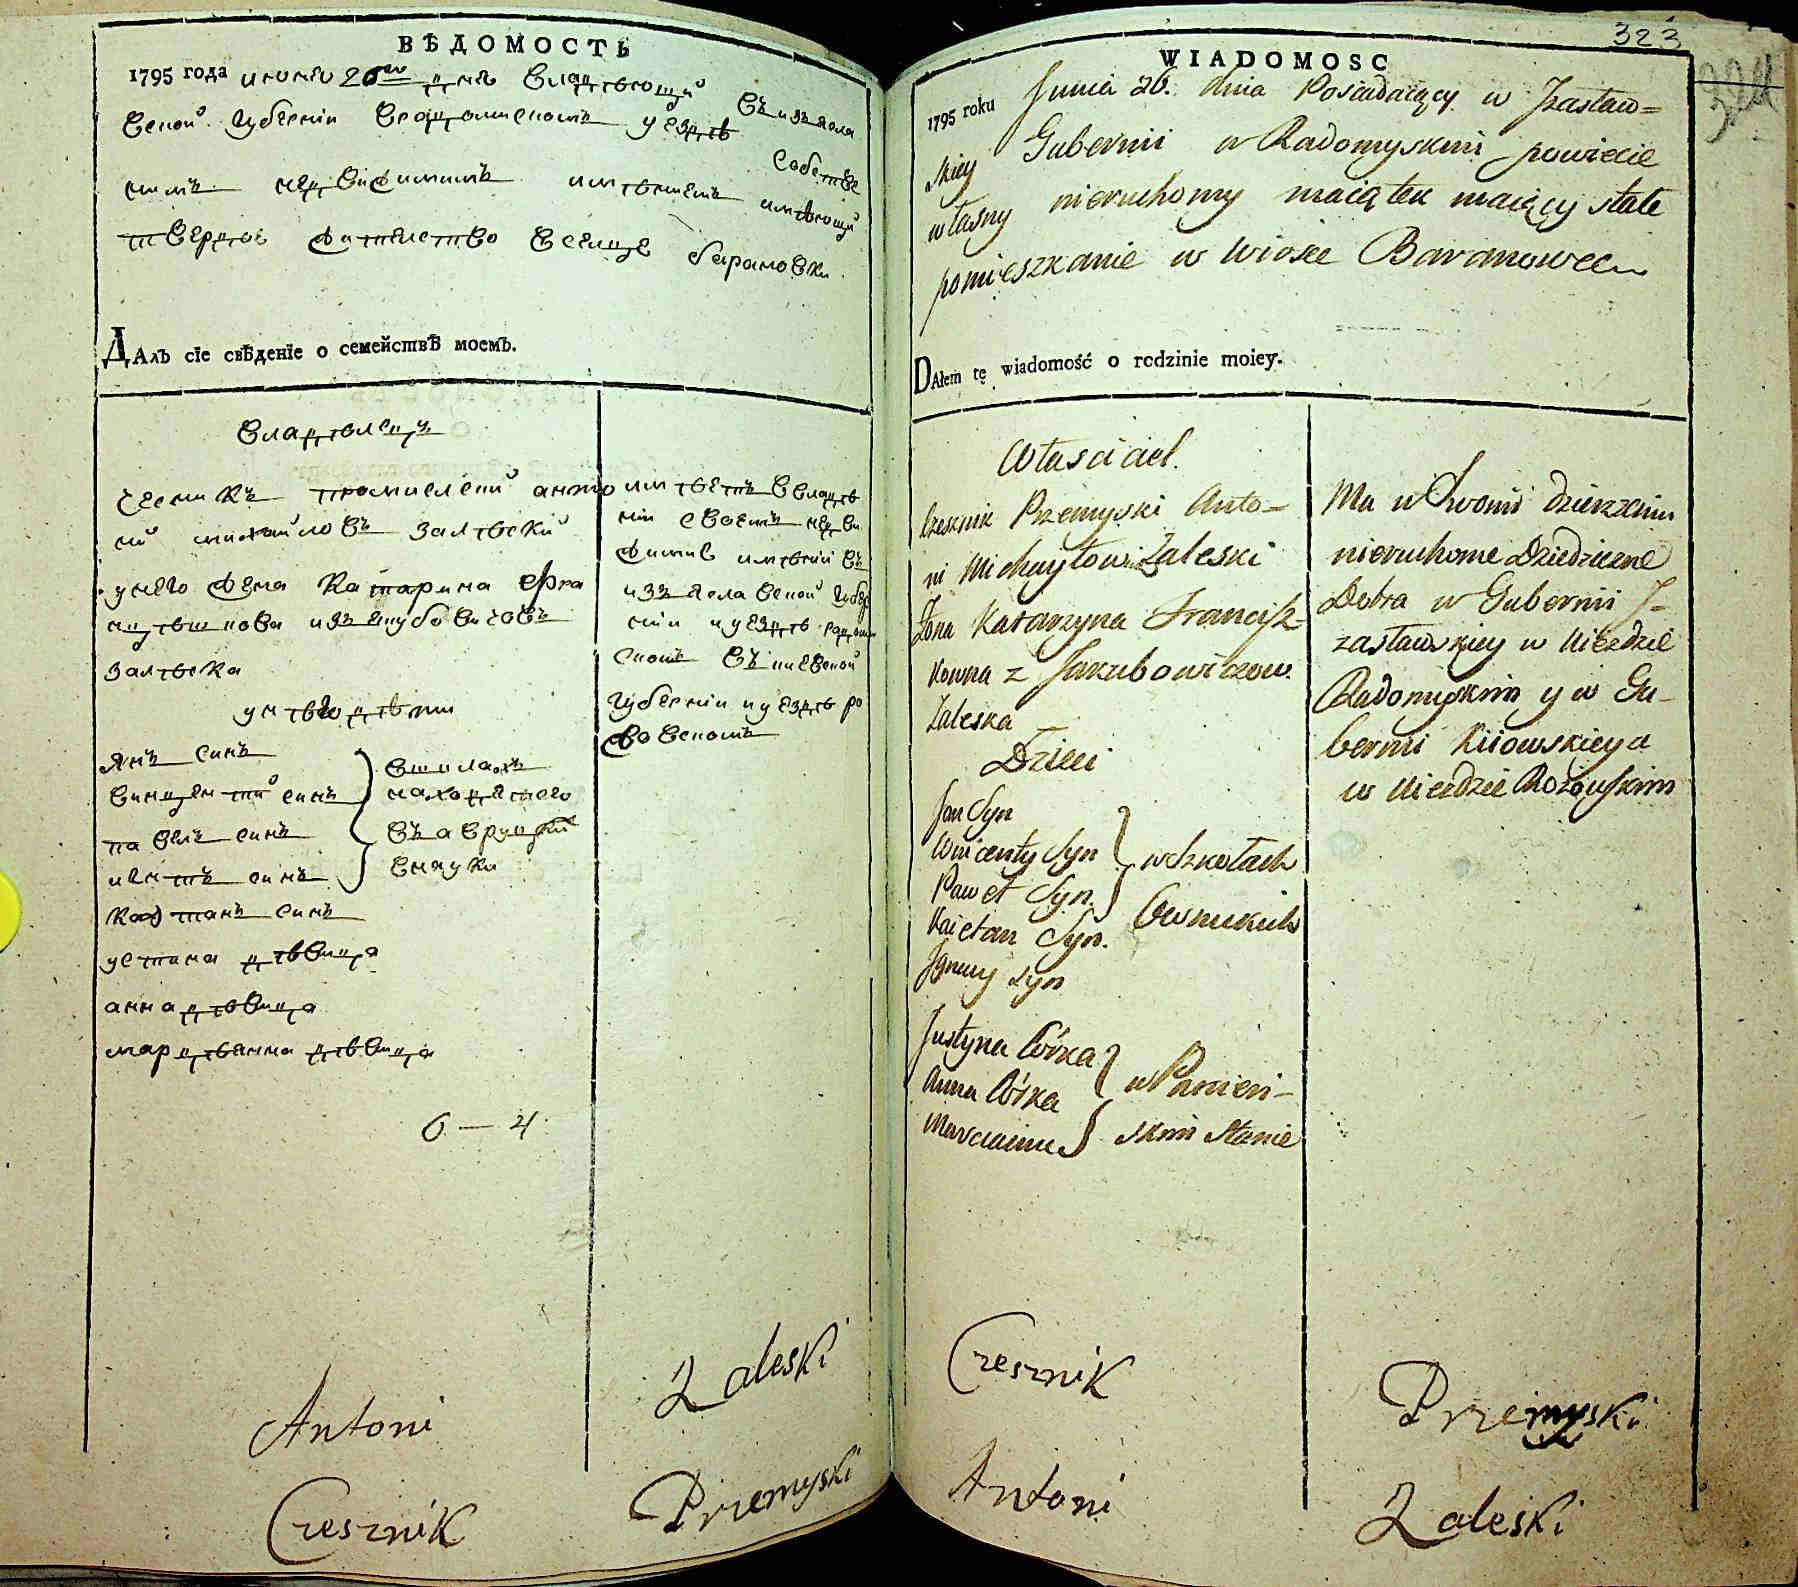 ВѢДОМОСТЬ
1795 года июня 26го дня владѣющий въ изъясла
вской губерніи врадомискомъ уездѣ собстве
нимъ недвижимимъ имѣнiемъ имѣющий
твердое жителство вселце барановки
ДАлъ сїе свѣденїе о семействѣ моемъ.
владѣлецъ
чесникъ премислский анто
ний михайловъ залѣский
унего жена катарина фра
нцѣшкова изъ якубовичовъ
залѣска
унѣго дѣти
янъ синъ
винцентий синъ
павелъ синъ
игнатъ синъ
вшколахъ
находятсе
въ овруцкий
внауки
каэтанъ синъ
устина дѣвица
анна дѣвица
марцѣанна дѣвица
6 — 4
имѣетъ ввладѣ
нии своемъ недви
жимие имѣнии въ
изъяславской губер
нии и уездѣ радоми
скомъ въ киевской
губернии и уездѣ
Zaleski
Antoni
Przemyski
Czesznik
323
324
WIADOMOSC
1795 roku Junia 26. dnia Posiadaiący w Izasław=
skiey Gubernii w Radomyskim powiecie
własny nieruchomy maiątek maiący stałe
pomieszkanie w wiosce Baranowce
DAłem tę wiadomość o rodzinie moiey.
Własciciel.
Czesznik Przemyski Anto=
ni Michayłowicz Zaleski
Żona Katarzyna Francisz=
kowna z Jakubowiczow
Zaleska
Dzieci
Jan Syn
Wincenty Syn
Paweł Syn.
Kaietan Syn.
Jgnacy Syn
w Szkołach
Owruckich
Justyna Córka
Anna Córka
Marcianna
w Panień=
skim stanie
Ma w Swoim dzierżeniu
nieruchome Dziedziczne
Dobra w Gubernii J=
zasławskiey w Uiezdzie
Radomyskim y w Gu=
bernii Kiiowskiey a
w Uiezdzie
Czesznik
Przemyski
Antoni
Zaleski